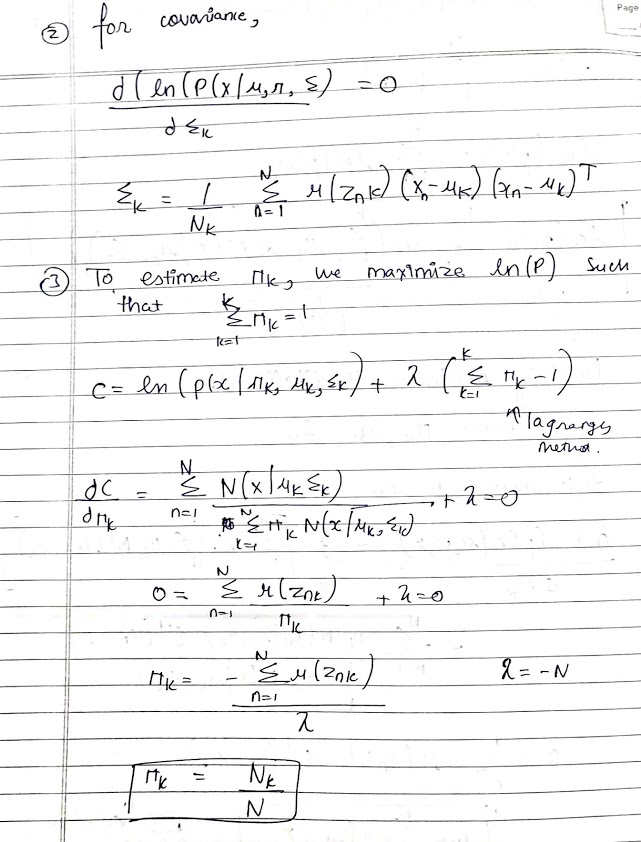 Page
② for covariance,
d(ln(P(x/μ,π, Σ) = 0
dΣk
Σk = 1/Nk N Σ n=1 r(znk) (xn-μk) (xn-μk)T
③ To estimate πk, we maximize ln(P) such
that k Σ k=1 πk = 1
C = ln(p(x/πk, μk, Σk) + λ (k Σ k=1 πk - 1)
↑ lagranges
method.
dC/dπk = N Σ n=1 N(x/μk Σk) / N Σ k=1 πk N(x/μk, Σk) + λ = 0
0 = N Σ n=1 r(znk)/πk + λ = 0
πk = - N Σ n=1 r(znk) / λ λ = -N
πk = Nk/N